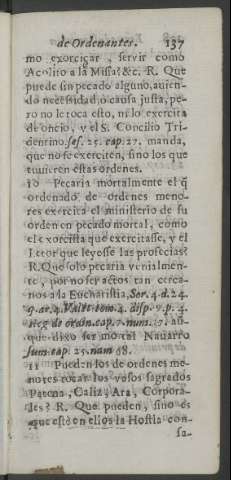 de Ordenantes. 137
mo exorcizar, servir como
Acolito a la Missa? &c. R. Que
puede sin pecado alguno, avien-
do necessidad, ò causa justa, pe-
ro no le toca esto, ni lo exercita
de oficio, y el S. Concilio Tri-
dentino. ses. 25. cap. 27. manda,
que no se exerciten, sino los que
tuvieren estas ordenes.
10 Pecaria mortalmente el q̃
ordenado de ordenes meno-
res exercita el ministerio de su
orden en pecado mortal, como
el exorcista que exercitasse, y el
Letor que leyesse las profecias?
R. Que solo pecaria venialmen-
te, por no ser actos tan cerca-
nos à la Eucharistia, Ser. 4. d. 24.
q. ar. 4. Valet. tom. 4. disp. 9. p. 4.
de ordin. cap. 7. num. 17. aũ-
que dixo ser mortal Navarro
sum. cap. 25. num 68.
11 Pueden los de ordenes me-
nores tocar los vasos sagrados
Patena, Caliz, Ara, Corpora-
les? R. Que pueden, sino es
que estè en ellos la Hostia con-
sa-